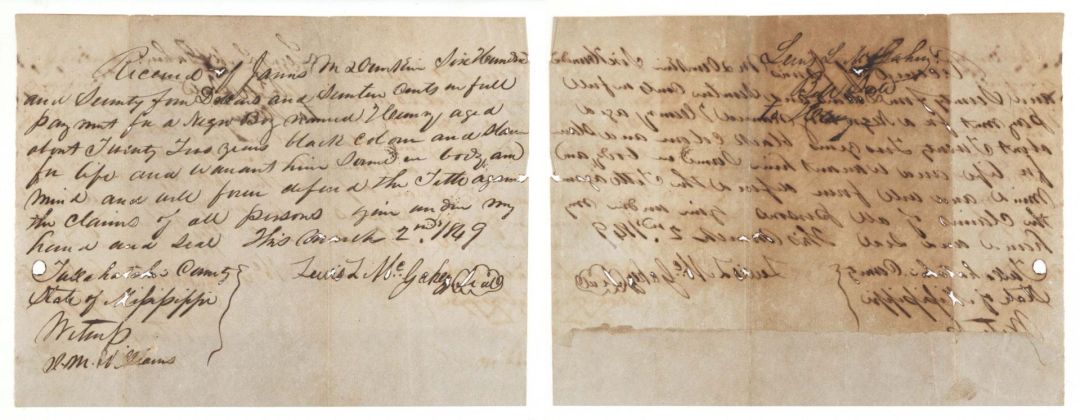 Received of James M Dunklin Six Hundred
and Seventy four Dollars and Seventen Cents in full
pay ment for a Negro Boy named Henry aged
about Twenty Two years black colour and Slave
for life and warant him Sound in body and
mind and will forever defend the Tittle against
the claims of all persons givin under my
hand and Seal This March 2nd 1849
Tallahatchie County
Lewis L Mc Gahey Seal
State of Mississippi
Witness
M. Williams
Lewis L McGahey
Bill Sale
Henry